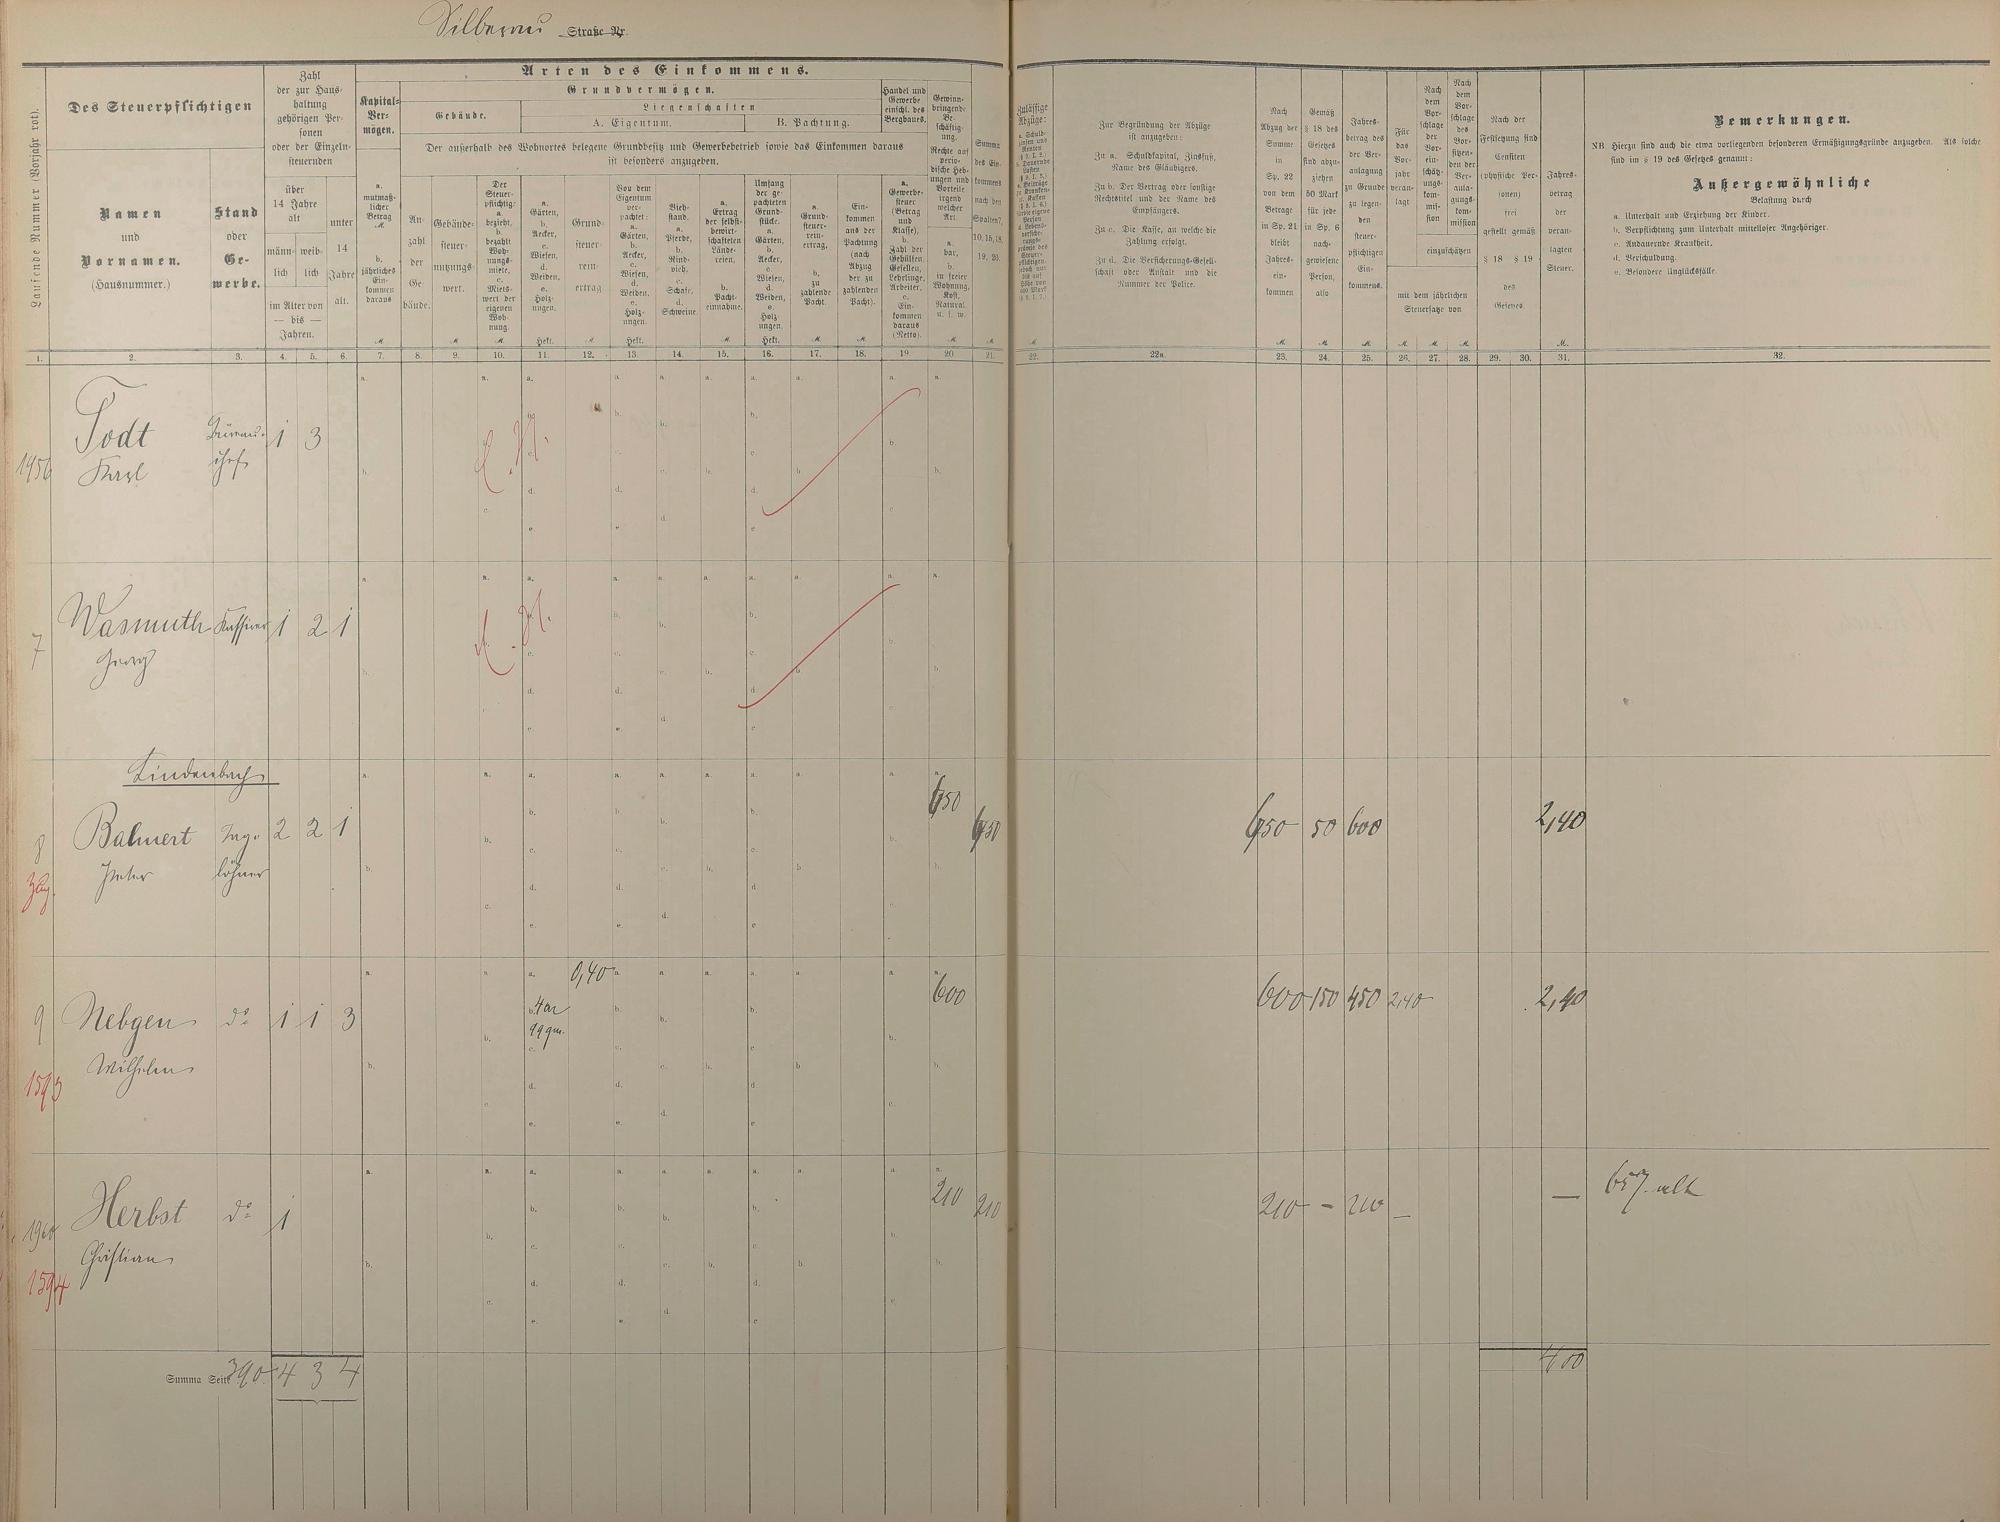 Silberau Straße Nr.
Laufende Nummer (Vorjahr rot).
Des Steuerpflichtigen
Namen
und
Vornamen.
(Hausnummer.)
Stand
oder
Ge-
werbe.
Zahl
der zur Haus-
haltung
gehörigen Per-
sonen
oder der Einzeln-
steuernden
über
14 Jahre
alt
männ-
lich
weib-
lich
im Alter von
— bis —
Jahren.
unter
14
Jahre
alt.
Arten des Einkommens.
Kapital-
Ver-
mögen.
a.
mutmaß-
licher
Betrag
M.
b.
jährliches
Ein-
kommen
daraus
M
Grundvermögen.
Gebäude.
Liegenschaften
A. Eigentum.
B. Pachtung.
Der außerhalb des Wohnortes belegene Grundbesitz und Gewerbebetrieb sowie das Einkommen daraus
ist besonders anzugeben.
An-
zahl
der
Ge-
bäude.
Gebäude-
steuer-
nutzungs-
wert.
M
Der
Steuer-
pflichtige:
a.
bezieht,
b.
bezahlt
Woh-
nungs-
miete,
c.
Miets-
wert der
eigenen
Woh-
nung.
M.
a.
Gärten,
b.
Aecker,
c.
Wiesen,
d.
Weiden,
e.
Holz-
ungen.
Hekt.
Grund-
steuer-
rein-
ertrag
M
Von dem
Eigentum
ver-
pachtet:
a.
Gärten,
b.
Aecker,
c.
Wiesen,
d.
Weiden,
e.
Holz-
ungen.
Hekt.
Vieh-
stand.
a.
Pferde,
b.
Rind-
vieh,
c.
Schafe,
d.
Schweine.
a.
Ertrag
der selbst-
bewirt-
schafteten
Lände-
reien,
b.
Pacht-
einnahme.
M.
Umfang
der ge-
pachteten
Grund-
stücke.
a.
Gärten,
b.
Aecker,
c.
Wiesen,
d.
Weiden,
e.
Holz-
ungen.
Hekt.
a.
Grund-
steuer-
rein-
ertrag,
b.
zu
zahlende
Pacht.
M
Ein-
kommen
aus der
Pachtung
(nach
Abzug
der zu
zahlenden
Pacht).
M
Handel und
Gewerbe
einschl. des
Bergbaues.
a.
Gewerbe-
steuer
(Betrag
und
Klasse),
b.
Zahl der
Gehülfen,
Gesellen,
Lehrlinge,
Arbeiter,
c.
Ein-
kommen
daraus
(Netto).
Gewinn-
bringende
Be-
schäftig-
ung.
Rechte auf
perio-
dische Heb-
ungen und
Vorteile
irgend
welcher
Art.
a.
bar,
b.
in freier
Wohnung,
Kost,
Natural.
u. s. w.
M
Summa
des Ein-
kommens
nach den
Spalten 7,
10, 15, 18,
19, 20.
M
Zulässige
Abzüge:
M
Zur Begründung der Abzüge
ist anzugeben:
Zu a. Schuldkapital, Zinsfuß,
Name des Gläubigers.
Zu b. Der Vertrag oder sonstige
Rechtstitel und der Name des
Empfängers.
Zu c. Die Kasse, an welche die
Zahlung erfolgt.
Zu d. Die Versicherungs-Gesell-
schaft oder Anstalt und die
Nummer der Police.
Nach
Abzug der
Summe
in
Sp. 22
von dem
Betrage
in Sp. 21
bleibt
Jahres-
ein-
kommen
M
Gemäß
§ 18 des
Gesetzes
sind abzu-
ziehen
50 Mark
für jede
in Sp. 6
nach-
gewiesene
Person,
also
M
Jahres-
betrag des
der Ver-
anlagung
zu Grunde
zu legen-
den
steuer-
pflichtigen
Ein-
kommens.
M
Für
das
Vor-
jahr
veran-
lagt
M
Nach
dem
Vor-
schlage
der
Vor-
ein-
schätz-
ungs-
kom-
mis-
sion
M
Nach
dem
Vor-
schlage
des
Vor-
sitzen-
den der
Ver-
anla-
gungs-
kom-
mission
M
einzuschätzen
mit dem jährlichen
Steuersatze von
Nach der
Festsetzung sind
Censiten
(physische Per-
sonen)
frei
gestellt gemäß
§ 18 § 19
des
Gesetzes.
Jahres-
betrag
der
veran-
lagten
Steuer.
M.
Bemerkungen.
NB. Hierzu sind auch die etwa vorliegenden besonderen Ermäßigungsgründe anzugeben. Als solche
sind im § 19 des Gesetzes genannt:
Außergewöhnliche
Belastung durch
a. Unterhalt und Erziehung der Kinder.
b. Verpflichtung zum Unterhalt mittelloser Angehöriger.
c. Andauernde Krankheit.
d. Verschuldung.
e. Besondere Unglücksfälle.
1. 2. 3. 4. 5. 6. 7. 8. 9. 10. 11. 12. 13. 14. 15. 16. 17. 18. 19 20 21. 22. 22a. 23. 24. 25. 26. 27. 28. 29. 30. 31. 32.
1956 Todt Büreau- 1 3
Karl chef
7 Wasmuth Kassirer 1 2 1
Georg
Lindenbach
8 Balmert Tage- 2 2 1 650 650 650 50 600 2,40
Zug. Peter löhner
9 Nebgen do 1 1 3 0,40 4 ar 99 qm. 600 600 150 450 2,40 2,40
1593 Wilhelm
1960 Herbst do 1 210 210 210 - 210 — — 65 J. alt
1594 Christian
Summa Seite 390. 4 3 4 400